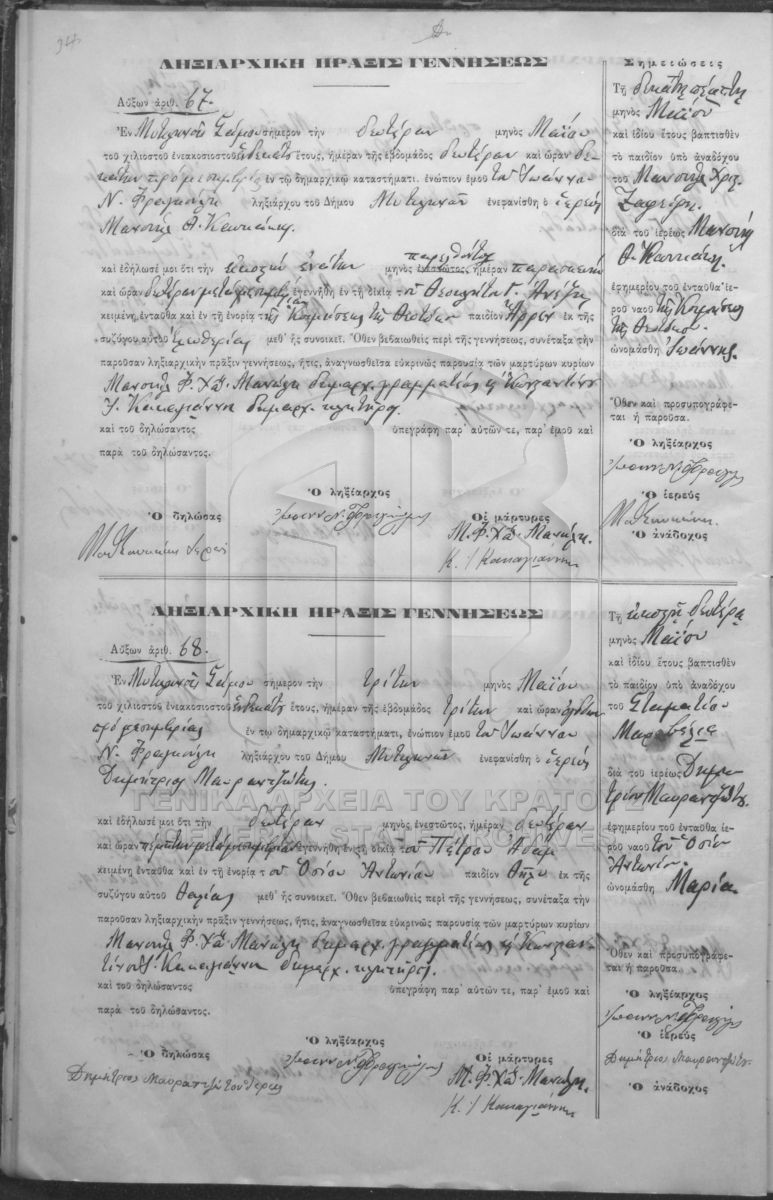 94
ΛΗΞΙΑΡΧΙΚΗ ΠΡΑΞΙΣ ΓΕΝΝΗΣΕΩΣ
Αὔξων ἀριθ. 67.
Ἐν Μυτιληνιοῖς Σάμου σήμερον τὴν δευτέραν μηνὸς Μαΐου
τοῦ χιλιοστοῦ ἐνεακοσιοστοῦ ἑνδεκάτου ἔτους, ἡμέραν τῆς ἑβδομάδος δευτέραν καὶ ὥραν δε-
κάτην πρὸ μεσημβρίας ἐν τῷ δημαρχικῷ καταστήματι, ἐνώπιον ἐμοῦ τοῦ Ἰωάννου
Ν. Φραγκούλη ληξιάρχου τοῦ Δήμου Μυτιληνιῶν ἐνεφανίσθη ὁ ἱερεὺς
Μανουὴλ Θ.
καὶ ἐδήλωσέ μοι ὅτι τὴν εἰκοστὴν ἐνάτην μηνὸς ἐνεστῶτος, παρελθόντος ἡμέραν παρασκευὴν
καὶ ὥραν δευτέραν μετὰ μεσημβρίαν ἐγεννήθη ἐν τῇ οἰκίᾳ τοῦ
κειμένη ἐνταῦθα καὶ ἐν τῇ ἐνορίᾳ τῆς Κοιμήσεως τῆς Θεοτόκου παιδίον Ἄρρεν ἐκ τῆς
συζύγου αὐτοῦ Ἐλευθερίας μεθ' ἧς συνοικεῖ. Ὅθεν βεβαιωθεὶς περὶ τῆς γεννήσεως, συνέταξα τὴν
παροῦσαν ληξιαρχικὴν πρᾶξιν γεννήσεως, ἥτις, ἀναγνωσθεῖσα εὐκρινῶς παρουσίᾳ τῶν μαρτύρων κυρίων
Μανουὴλ Φ. Χ΄΄ Μανώλη δημαρχ. γραμματέως καὶ Κωνσταντίνου
Ι. Κακαγιάννη δημαρχ. κλητῆρος.
καὶ τοῦ δηλώσαντος ὑπεγράφη παρ' αὐτῶν τε, παρ' ἐμοῦ καὶ
παρὰ τοῦ δηλώσαντος.
Ὁ δηλώσας
Ὁ ληξίαρχος
Ἰωάνν. Ν. Φραγκούλης
Οἱ μάρτυρες
Μ. Φ. Χ΄΄ Μανώλης.
Κ. Ι. Κακαγιάννης
Σημειώσεις
Τῇ δεκάτῃ πέμπτῃ
μηνὸς Μαΐου
καὶ ἰδίου ἔτους βαπτισθὲν
τὸ παιδίον ὑπὸ ἀναδόχου
τοῦ Μανουὴλ Χρ.
Ζαφείρη.
διὰ τοῦ ἱερέως Μανουὴλ
Θ.
ἐφημερίου τοῦ ἐνταῦθα ἱε-
ροῦ ναοῦ τῆς Κοιμήσεως
τῆς Θεοτόκου.
ὠνομάσθη Ἰωάννης.
Ὅθεν καὶ προσυπογράφε-
ται ἡ παροῦσα.
Ὁ ληξίαρχος
Ἰωάνν. Ν. Φραγκούλης
Ὁ ἱερεὺς
Ὁ ἀνάδοχος
ΛΗΞΙΑΡΧΙΚΗ ΠΡΑΞΙΣ ΓΕΝΝΗΣΕΩΣ
Αὔξων ἀριθ. 68.
Ἐν Μυτιληνιοῖς Σάμου σήμερον τὴν τρίτην μηνὸς Μαΐου
τοῦ χιλιοστοῦ ἐνεακοσιοστοῦ ἑνδεκάτου ἔτους, ἡμέραν τῆς ἑβδομάδος τρίτην καὶ ὥραν ὀγδόην
πρὸ μεσημβρίας ἐν τῷ δημαρχικῷ καταστήματι, ἐνώπιον ἐμοῦ τοῦ Ἰωάννου
Ν. Φραγκούλη ληξιάρχου τοῦ Δήμου Μυτιληνιῶν ἐνεφανίσθη ὁ ἱερεὺς
Δημήτριος Μαυρατζώτης.
καὶ ἐδήλωσέ μοι ὅτι τὴν δευτέραν μηνὸς ἐνεστῶτος, ἡμέραν δευτέραν
καὶ ὥραν πέμπτην μετὰ μεσημβρίαν ἐγεννήθη ἐν τῇ οἰκίᾳ τοῦ Πέτρου Ἀδὰμ
κειμένη ἐνταῦθα καὶ ἐν τῇ ἐνορίᾳ τοῦ Ὁσίου Ἀντωνίου παιδίον Θῆλυ ἐκ τῆς
συζύγου αὐτοῦ Θαλίας μεθ' ἧς συνοικεῖ. Ὅθεν βεβαιωθεὶς περὶ τῆς γεννήσεως, συνέταξα τὴν
παροῦσαν ληξιαρχικὴν πρᾶξιν γεννήσεως, ἥτις, ἀναγνωσθεῖσα εὐκρινῶς παρουσίᾳ τῶν μαρτύρων κυρίων
Μανουὴλ Φ. Χ΄΄ Μανώλη δημαρχ. γραμματέως καὶ Κωνσταν-
τίνου Ι. Κακαγιάννη δημαρχ. κλητῆρος.
καὶ τοῦ δηλώσαντος ὑπεγράφη παρ' αὐτῶν τε, παρ' ἐμοῦ καὶ
παρὰ τοῦ δηλώσαντος.
Ὁ δηλώσας
Δημήτριος
Ὁ ληξίαρχος
Ἰωάνν. Ν. Φραγκούλης
Οἱ μάρτυρες
Μ. Φ. Χ΄΄ Μανώλης.
Κ. Ι. Κακαγιάννης
Τῇ εἰκοστῇ δευτέρᾳ
μηνὸς Μαΐου
καὶ ἰδίου ἔτους βαπτισθὲν
τὸ παιδίον ὑπὸ ἀναδόχου
τοῦ Σταματίου
διὰ τοῦ ἱερέως Δημη-
τρίου Μαυρατζώτη
ἐφημερίου τοῦ ἐνταῦθα ἱε-
ροῦ ναοῦ τοῦ Ὁσίου
Ἀντωνίου.
ὠνομάσθη Μαρία.
Ὅθεν καὶ προσυπογράφε-
ται ἡ παροῦσα.
Ὁ ληξίαρχος
Ἰωάνν. Ν. Φραγκούλης
Ὁ ἱερεὺς
Δημήτριος
Ὁ ἀνάδοχος
ΓΕΝΙΚΑ ΑΡΧΕΙΑ ΤΟΥ ΚΡΑΤΟΥΣ
GENERAL STATE ARCHIVES